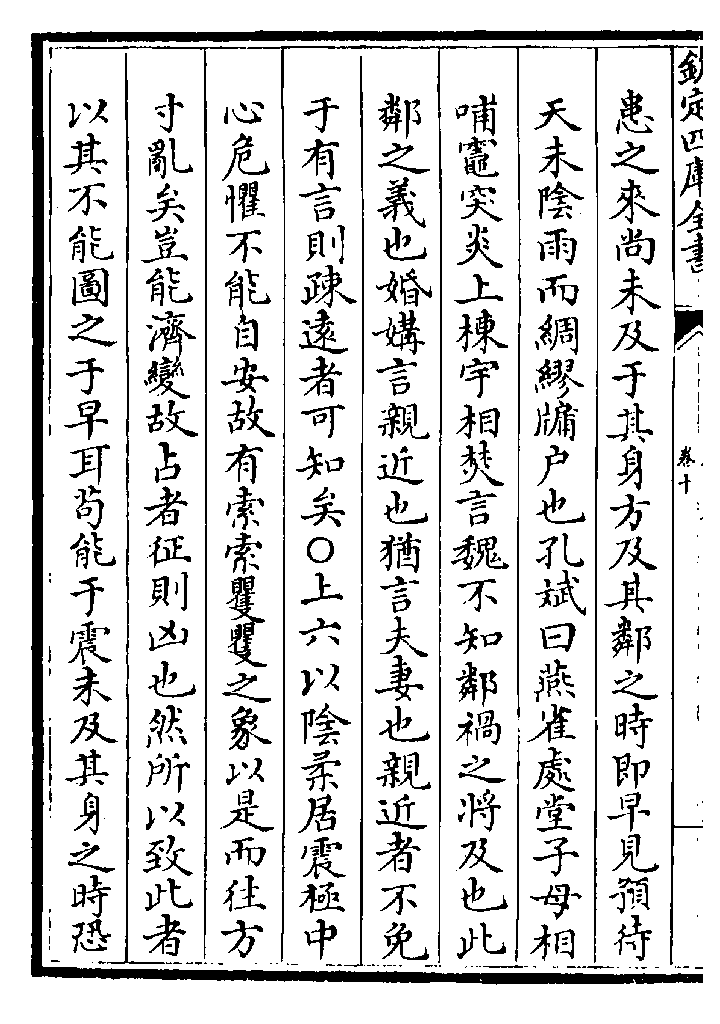 欽定四庫全書
卷十
患之來尚未及于其身方及其鄰之時即早見預待
天未陰雨而綢繆牖户也孔斌曰燕雀處堂子母相
哺竈突炎上棟宇相焚言魏不知鄰禍之將及也此
鄰之義也婚媾言親近也猶言夫妻也親近者不免
于有言則疎遠者可知矣○上六以陰柔居震極中
心危懼不能自安故有索索矍矍之象以是而往方
寸亂矣豈能濟變故占者征則凶也然所以致此者
以其不能圖之于早耳苟能于震未及其身之時恐